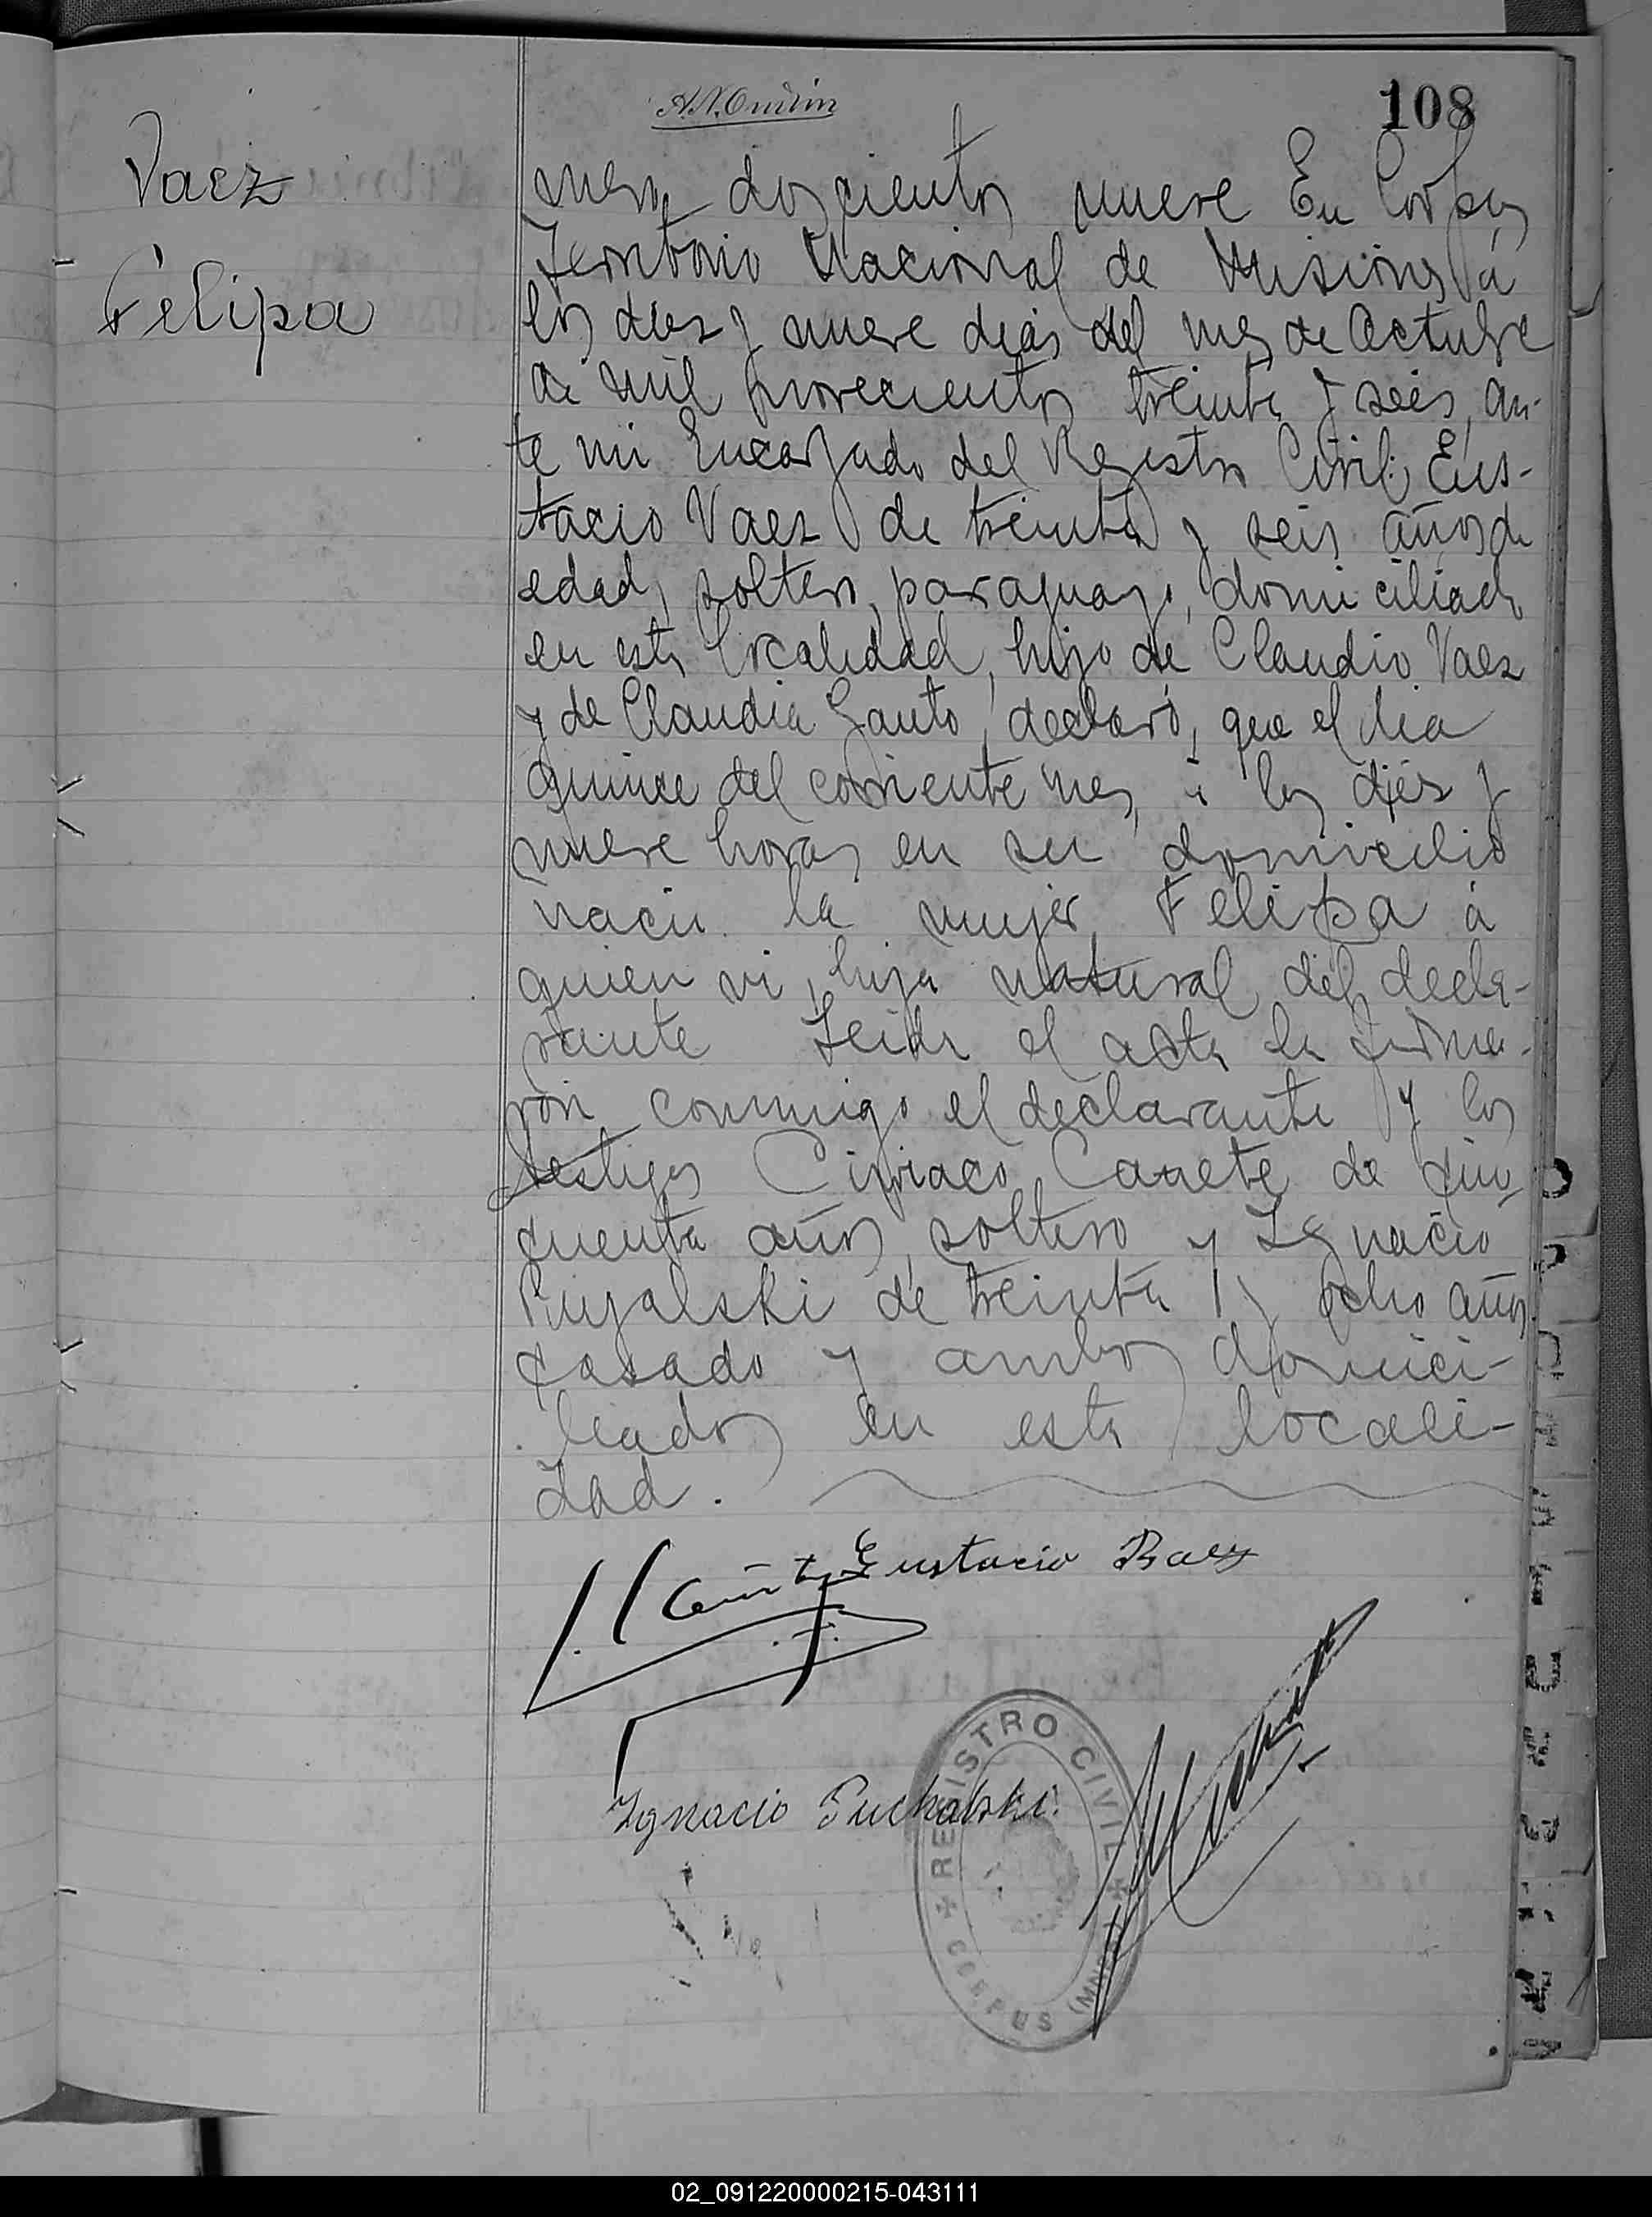 108
Vaez
Felipa
mero doscientos nueve En Corpus
Territorio Nacional de Misiones á
los diez y nueve dias del mes de Octubre
de mil novecientos treinta y seis, an-
te mi Encargado del Registro Civil: Eus-
tacio Vaez de treinta y seis años de
edad, soltero, paraguayo, domiciliado
en esta localidad, hijo de Claudio Vaez
y de Claudia Gauto, declaró, que el dia
quince del corriente mes, á las diez y
nueve horas en su domicilio
nació la mujer Felipa á
quien vi, hija natural del decla-
rante Leida el acta la firma-
ron conmigo el declarante y los
testigos Ciriaco Canete de cin-
cuenta años, soltero y Ignacio
Pujalski de treinta y ocho años
casado y ambos domici-
liados en esta locali-
dad.
Eustacio Baez
Ignacio Puchalski
REGISTRO CIVIL
CORPUS (MNES)
02_091220000215-043111